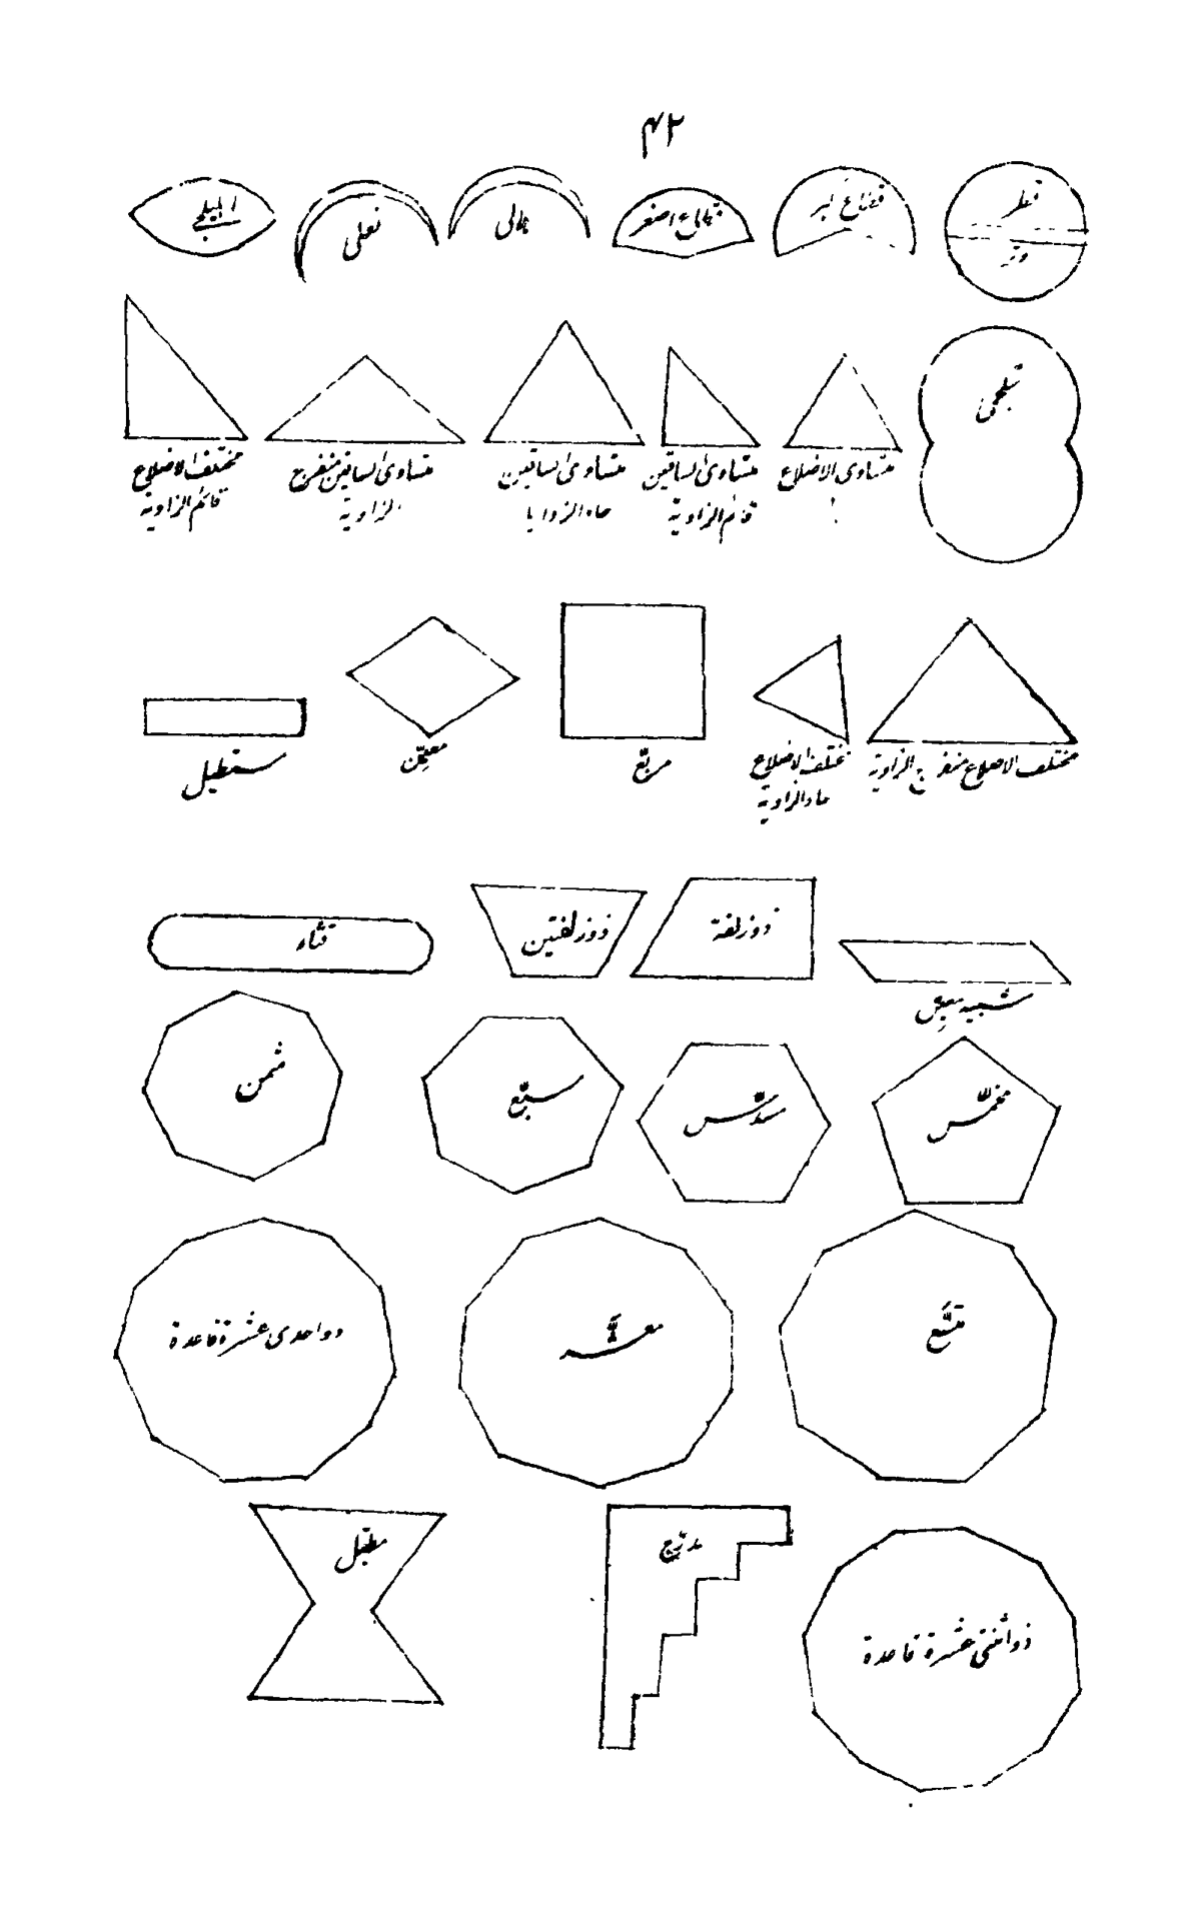 ۴۲
قطر
وتر
قطاع اکبر
قطاع اصغر
هلالی
نعلی
اهلیلجی
شلجمی
متساوی الاضلاع
متساوی الساقین
قائم الزاویة
متساوی الساقین
حاد الزوایا
متساوی الساقین منفرج
الزاویة
مختلف الاضلاع
قائم الزاویة
مختلف الاضلاع منفرج الزاویة
مختلف الاضلاع
حاد الزاویة
مربّع
معیّن
مستطیل
شبیه معین
ذوزلفة
ذوزلفتین
قثاء
مخمّس
مسدّس
مسبّع
مثمن
متسّع
معشّر
ذواحدی عشرة قاعدة
ذواثنتی عشرة قاعدة
مدرّج
مطبّل